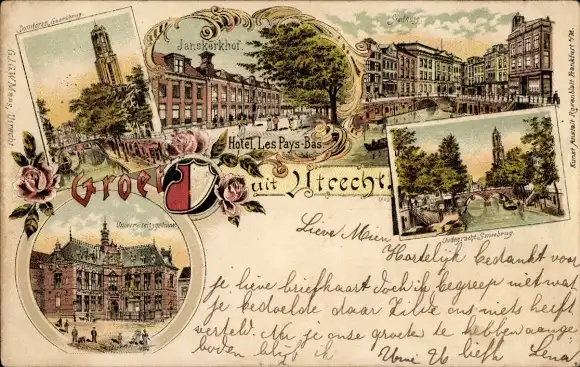 Domtoren, Gaardbrug.
Janskerkhof.
Stadhuis.
G.J.& W. Maas, Utrecht.
Hotel Les Pays-Bas
Groet uit Utrecht.
Oude gracht Smeebrug.
Universiteitsgebouw.
Kunst Anstalt Rosenblatt Frankfurt a/M.
Lieve Mien
Hartelijk bedankt voor
je lieve briefkaart doch ik begreep niet wat
je bedoelde daar Zilda ons niets heeft
verteld. Na je onze groeten te hebben aange-
boden blijf ik
liefh Lena